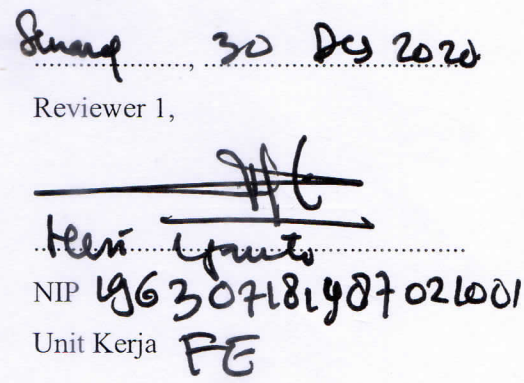 Semarang, 30 Des 2020
Reviewer 1,
Heri Yanto
NIP 196307181987021001
Unit Kerja FE